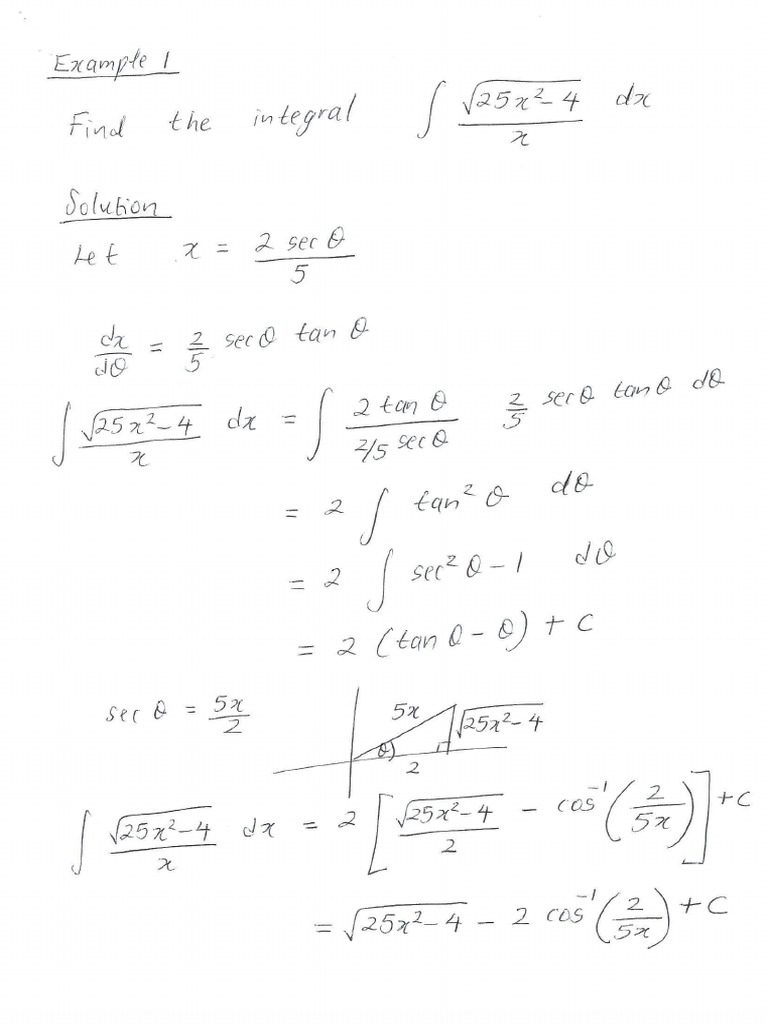 Example 1
Find the integral ∫ √(25x²−4)/x dx
Solution
Let x = 2 sec θ/5
dx/dθ = 2/5 sec θ tan θ
∫ √(25x²−4)/x dx = ∫ 2 tan θ/(2/5 sec θ) 2/5 sec θ tan θ dθ
= 2 ∫ tan² θ dθ
= 2 ∫ sec² θ − 1 dθ
= 2 (tan θ − θ) + C
sec θ = 5x/2
5x
√(25x²−4)
θ
2
∫ √(25x²−4)/x dx = 2 [√(25x²−4)/2 − cos⁻¹(2/5x)] + C
= √(25x²−4) − 2 cos⁻¹(2/5x) + C